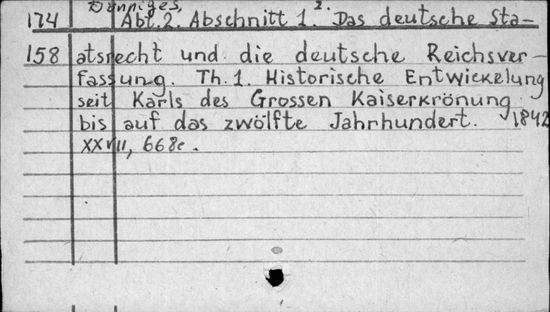 Dönniges, 2.
174 Abt. 2. Abschnitt 1. Das deutsche Sta-
158 atsrecht und die deutsche Reichsver-
fassung. Th. 1. Historische Entwickelung
seit Karls des Grossen Kaiserkrönung
bis auf das zwölfte Jahrhundert. 1842
XXVII, 668c.